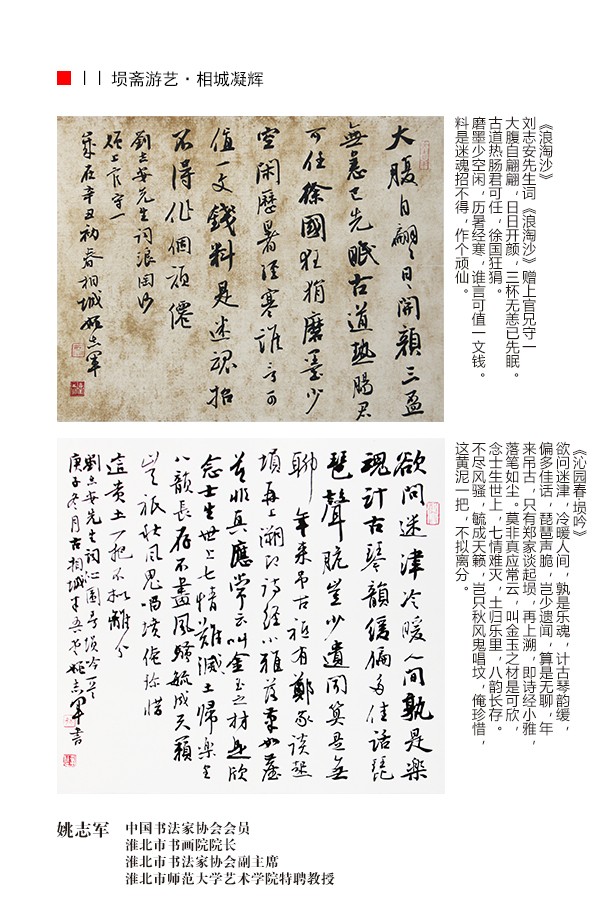 埙斋游艺·相城凝辉
大腹自翩々日々開顏三盃
無恙已先眠古道熱腸君
可任徐國狂狷磨墨少
空閑歷暑經寒誰言可
值一文錢料是迷魂招
不得作個頑僊
劉志安先生詞浪淘沙
贈上官守一
歲在辛丑初春相城姚志軍
《浪淘沙》
刘志安先生词《浪淘沙》赠上官兄守一
大腹自翩翩，日日开颜，三杯无恙已先眠。
古道热肠君可任，徐国狂狷。
磨墨少空闲，历暑经寒，谁言可值一文钱。
料是迷魂招不得，作个顽仙。
欲問迷津冷暖人間孰是樂
魂計古琴韻緩偏多佳話琵
琶聲脆豈少遺聞算是無
聊年来吊古祇有鄭家談起
塤再上溯即詩經小雅落筆如塵
莫非真應常云叫金玉之材是可欣
念士生世上七情難滅土歸樂里
八韻長存不盡風騷毓成天籟
豈祇秋風鬼唱墳俺珍惜
這黄土一把不拟離分
劉志安先生詞沁園春塤吟一首
庚子冬月古相城姚志軍書
《沁园春·埙吟》
欲问迷津，冷暖人间，孰是乐魂，计古琴韵缓，
偏多佳话，琵琶声脆，岂少遗闻，算是无聊，年
来吊古，只有郑家谈起埙，再上溯，即诗经小雅，
落笔如尘。莫非真应常云，叫金玉之材是可欣，
念士生世上，七情难灭，土归乐里，八韵长存。
不尽风骚，毓成天籁，岂只秋风鬼唱坟，俺珍惜，
这黄泥一把，不拟离分。
姚志军
中国书法家协会会员
淮北市书画院院长
淮北市书法家协会副主席
淮北市师范大学艺术学院特聘教授